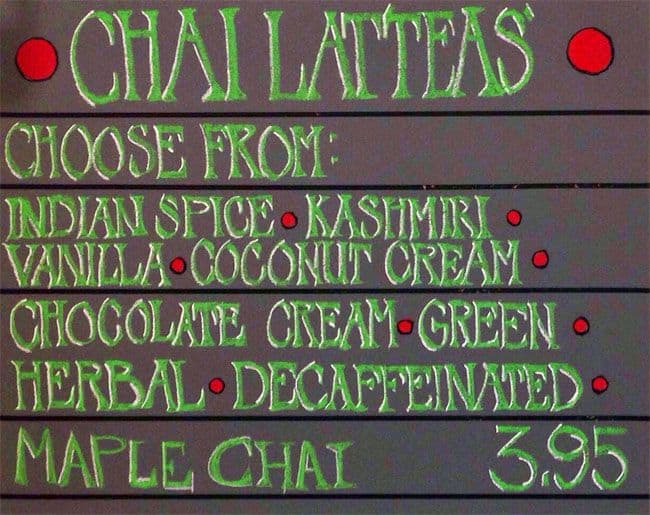 CHAI LATTEAS
CHOOSE FROM:
INDIAN SPICE • KASHMIRI •
VANILLA • COCONUT CREAM •
CHOCOLATE CREAM • GREEN •
HERBAL • DECAFFEINATED •
MAPLE CHAI 3.95